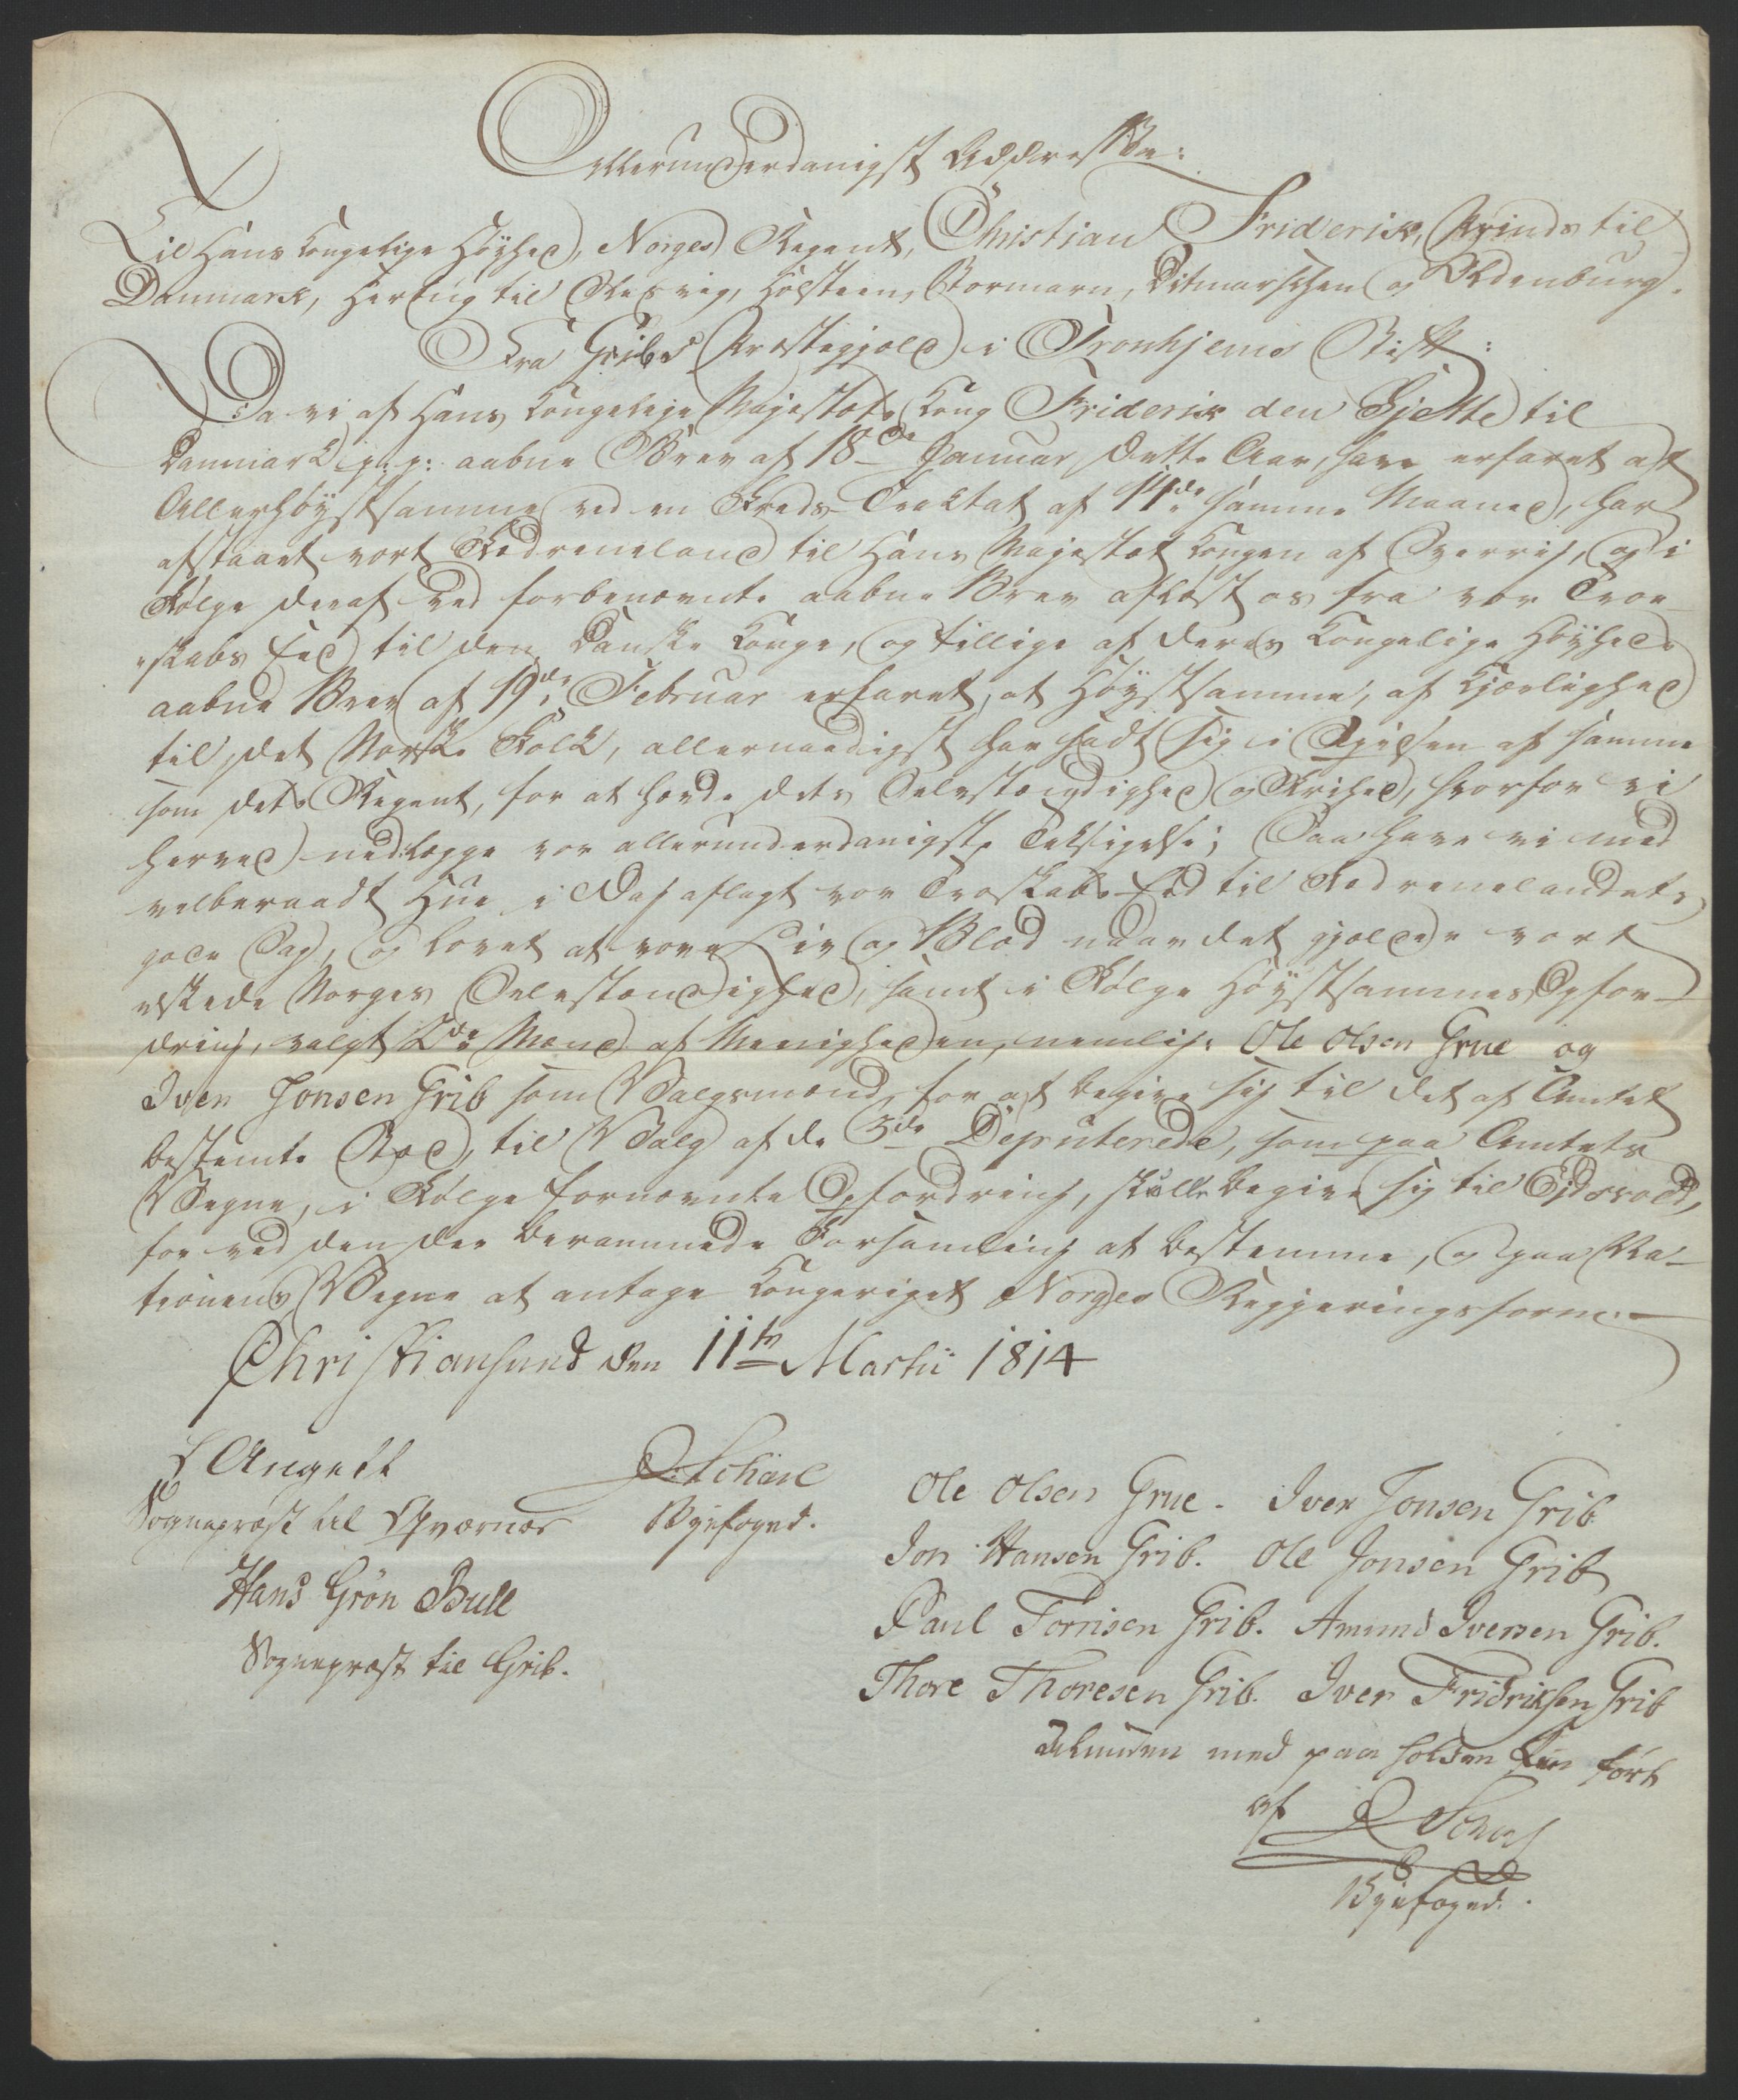 Allerunderdanigst Addresse:
Til Hans Kongelige Høyhed, Norges Regent, Christian Friderik, Prinds til
Danmark, Hertug til Slesvig, Holsteen, Stormarn, Ditmarschen og Oldenburg.
Fra Gribs Præstegjæld i Tronhjems Stift:
Da vi af Hans Kongelige Majestæts Kong Friderik den Sjette til
Danmark p. p: aabne Brev af 18de Januar dette Aar, have erfaret at
Allerhøystsamme ved en Freds-Tractat af 14de samme Maaned, har
afstaaet vort Fædreneland til Hans Majestæt Kongen af Sverrig, og i
Følge deraf ved forbenævnte aabne Brev afløst os fra vor Troe-
skabs Eed til den Danske Konge, og tillige af Deres Kongelige Høyheds
aabne Brev af 19de Februar erfaret, at Høystsamme, af Kjærlighed
til det Norske Folk, allernaadigst har sadt sig i Spidsen af samme
som dets Regent, for at hævde dets Selvstændighed og Frihed, hvorfor vi
herved nedlægge vor allerunderdanigste Taksigelse; Saa have vi med
velberaadt Hue i Dag aflagt vor Troskabs-Eed til Fædrenelandets
gode Sag, og lovet at vove Liv og Blod naar det gjælder vort
elskede Norges Selvstændighed, samt i Følge Høystsammes Opfor-
dring, valgt 2de Mænd af Menigheden, nemlig: Ole Olsen Grue og
Iver Jonsen Grib som Valgmænd, for at begive sig til det af Amtet
bestemte Stæd, til Valg af de 3de Deputerede, som paa Amtets
Vegne, i Følge fornævnte Opfordring, skulle begive sig til Ejdsvold,
for ved den der berammede Forsamling at bestemme, og paa Na-
tionens Vegne at antage Kongeriget Norges Regjeringsform.
Christiansund den 11te Martii 1814
L Angell
Sognepræst til Qværnæs
Byefoged.
Hans Grøn Bull
Sognepræst til Grib.
Ole Olsen Grue. Iver Jonsen Grib
Jon Hansen Grib. Ole Jonsen Grib
Paul Torrisen Grib. Amund Iversen Grib.
Thore Thoresen Grib. Iver Fridriksen Grib
med paa holden Pen ført
af
Byefoged.